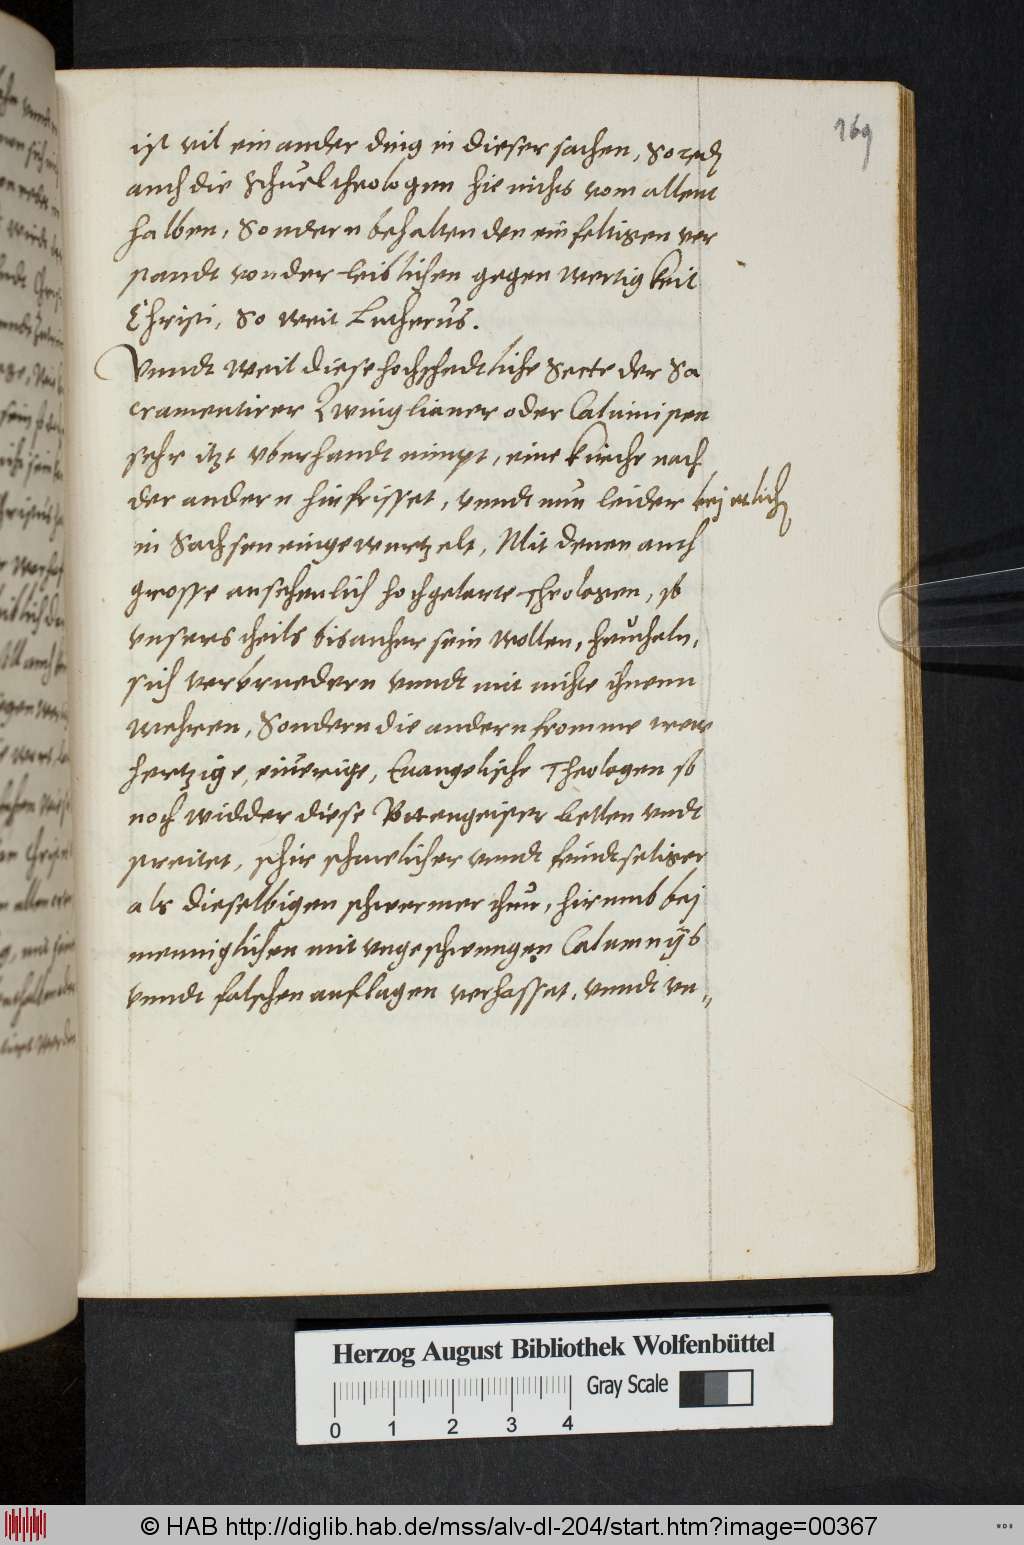 169
ist vil ein ander ding in dieser sachen, so redẽ
auch die Schuel theologen hie nichts vom allent
halben, Sondern behalten den einfeltigen ver
standt von der leiblichen gegenwertigkeit
Christi, So weit Lutherus.
Vnndt weil diese hochschedtliche Secte der Sa
cramentirer Zwinglianer oder Caluinisten
sehr itzt vberhandt nimpt, eine kirche nach
der andern hinfrisset, vnndt nun leider bej etlichẽ
in Sachsen eingewurtzelt, Mit denen auch
grosse ansehenlich hochgelarte Theologen, so
vnsers theils bis anher sein wollen, heucheln,
sich verbruedern vnndt mit nichte ihnenn
wehren, Sondern die andern fromme trew
hertzige, eiuerige, Euangelische Theologen so
noch widder diese Rottengeister bellen vndt
streitet, schir schmelicher vnndt feindtseliger
als dieselbigen schwermer thun, hirumb bej
menniglichen mit vngeschwungen Calumnijs
vnndt falschen auflagen verhasset, vnndt vn„
Herzog August Bibliothek Wolfenbüttel
Gray Scale
0 1 2 3 4
© HAB http://diglib.hab.de/mss/alv-dl-204/start.htm?image=00367